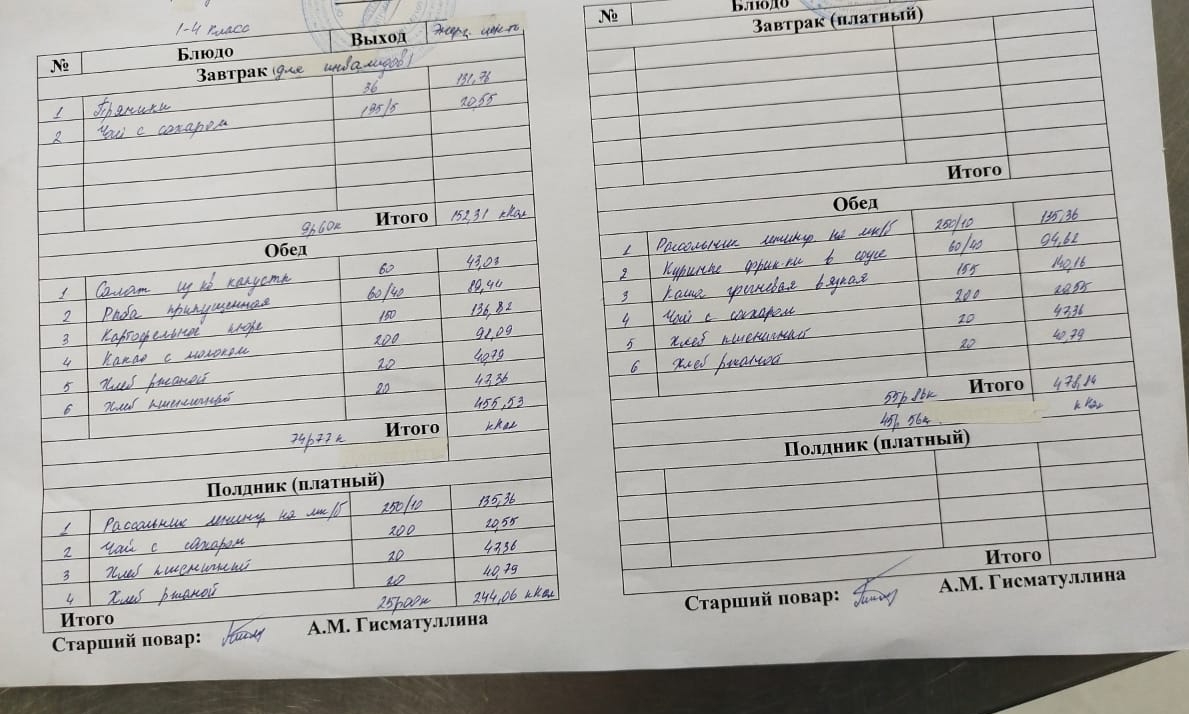 1-4 класс
№ Блюдо Выход Энерг. ценность
Завтрак (для инвалидов)
1 Пряники 36 131,76
2 Чай с сахаром 195/5 20,55
9р60к Итого 152,31 кКал
Обед
1 Салат из кв капусты 60 43,03
2 Рыба припущенная 60/40 89,44
3 Картофельное пюре 150 136,82
4 Какао с молоком 200 98,09
5 Хлеб ржаной 20 40,79
6 Хлеб пшеничный 20 47,36
74р77к Итого 455,53 кКал
Полдник (платный)
1 Рассольник ленингр на мк/б 250/10 135,36
2 Чай с сахаром 200 20,55
3 Хлеб пшеничный 20 47,36
4 Хлеб ржаной 20 40,79
Итого 25р00к 244,06 кКал
Старший повар: А.М. Гисматуллина
№ Блюдо
Завтрак (платный)
Итого
Обед
1 Рассольник ленингр на мк/б 250/10 135,36
2 Куриные фрик-ки в соусе 60/40 94,62
3 Каша гречневая вязкая 155 140,16
4 Чай с сахаром 200 20,55
5 Хлеб пшеничный 20 47,36
6 Хлеб ржаной 20 40,79
55р86к Итого 478,84
45р 56к кКал
Полдник (платный)
Итого
Старший повар: А.М. Гисматуллина